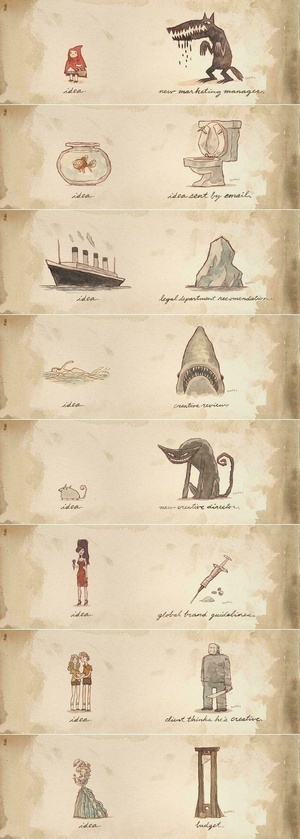 idea
new marketing manager
idea
idea sent by email
idea
legal department recomendation
idea
creative review
idea
new creative director
idea
global brand guidelines
idea
client thinks he's creative
idea
budget